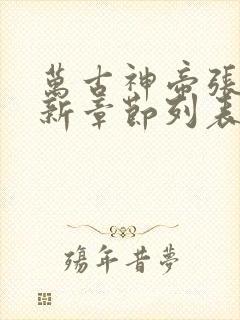 萬古神帝張
新章節列表
殤年昔夢